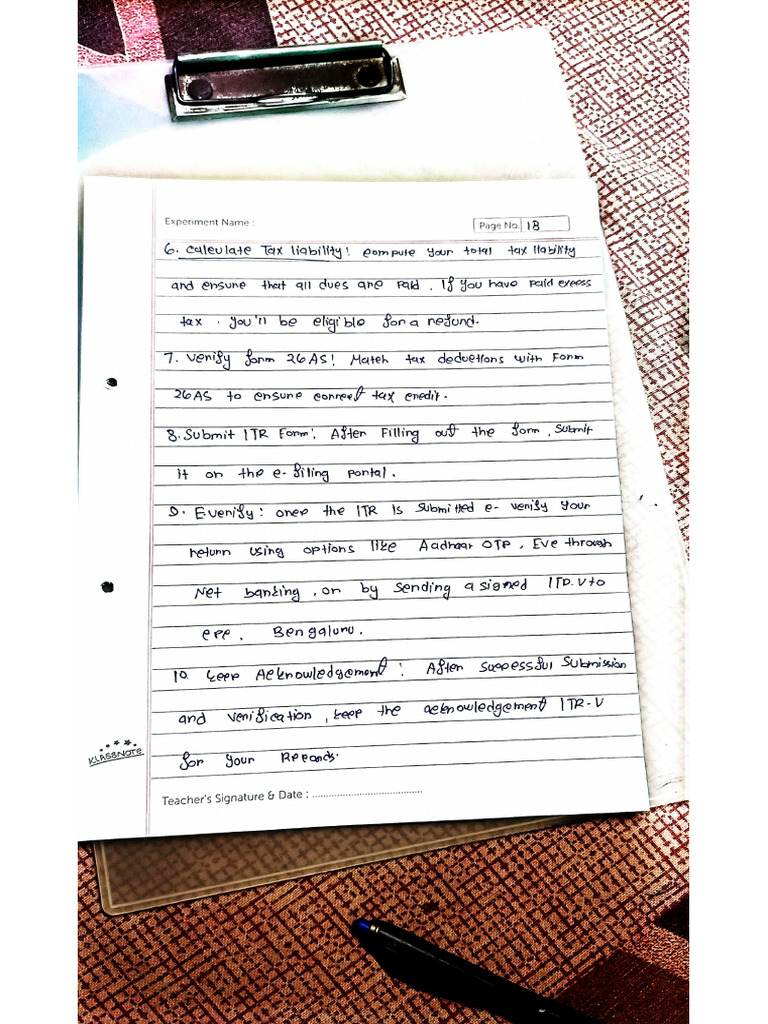 Experiment Name :
Page No. 18
6. Calculate Tax liability! compute your total tax liability
and ensure that all dues are paid. If you have paid excess
tax. you'll be eligible for a refund.
7. Verify form 26AS! Match tax deductions with Form
26AS to ensure correct tax credit.
8. Submit ITR Form! After Filling out the form, Submit
it on the e-filing portal.
9. E verify: once the ITR is submitted e- verify your
return using options like Aadhaar OTP, Eve through
Net banking, or by sending a signed ITD.V to
Bengaluru.
10. keep Acknowledgement! After successful submission
and verification, keep the acknowledgement ITR-V
for your Records.
KLASSNOTE
Teacher's Signature & Date : ......................................